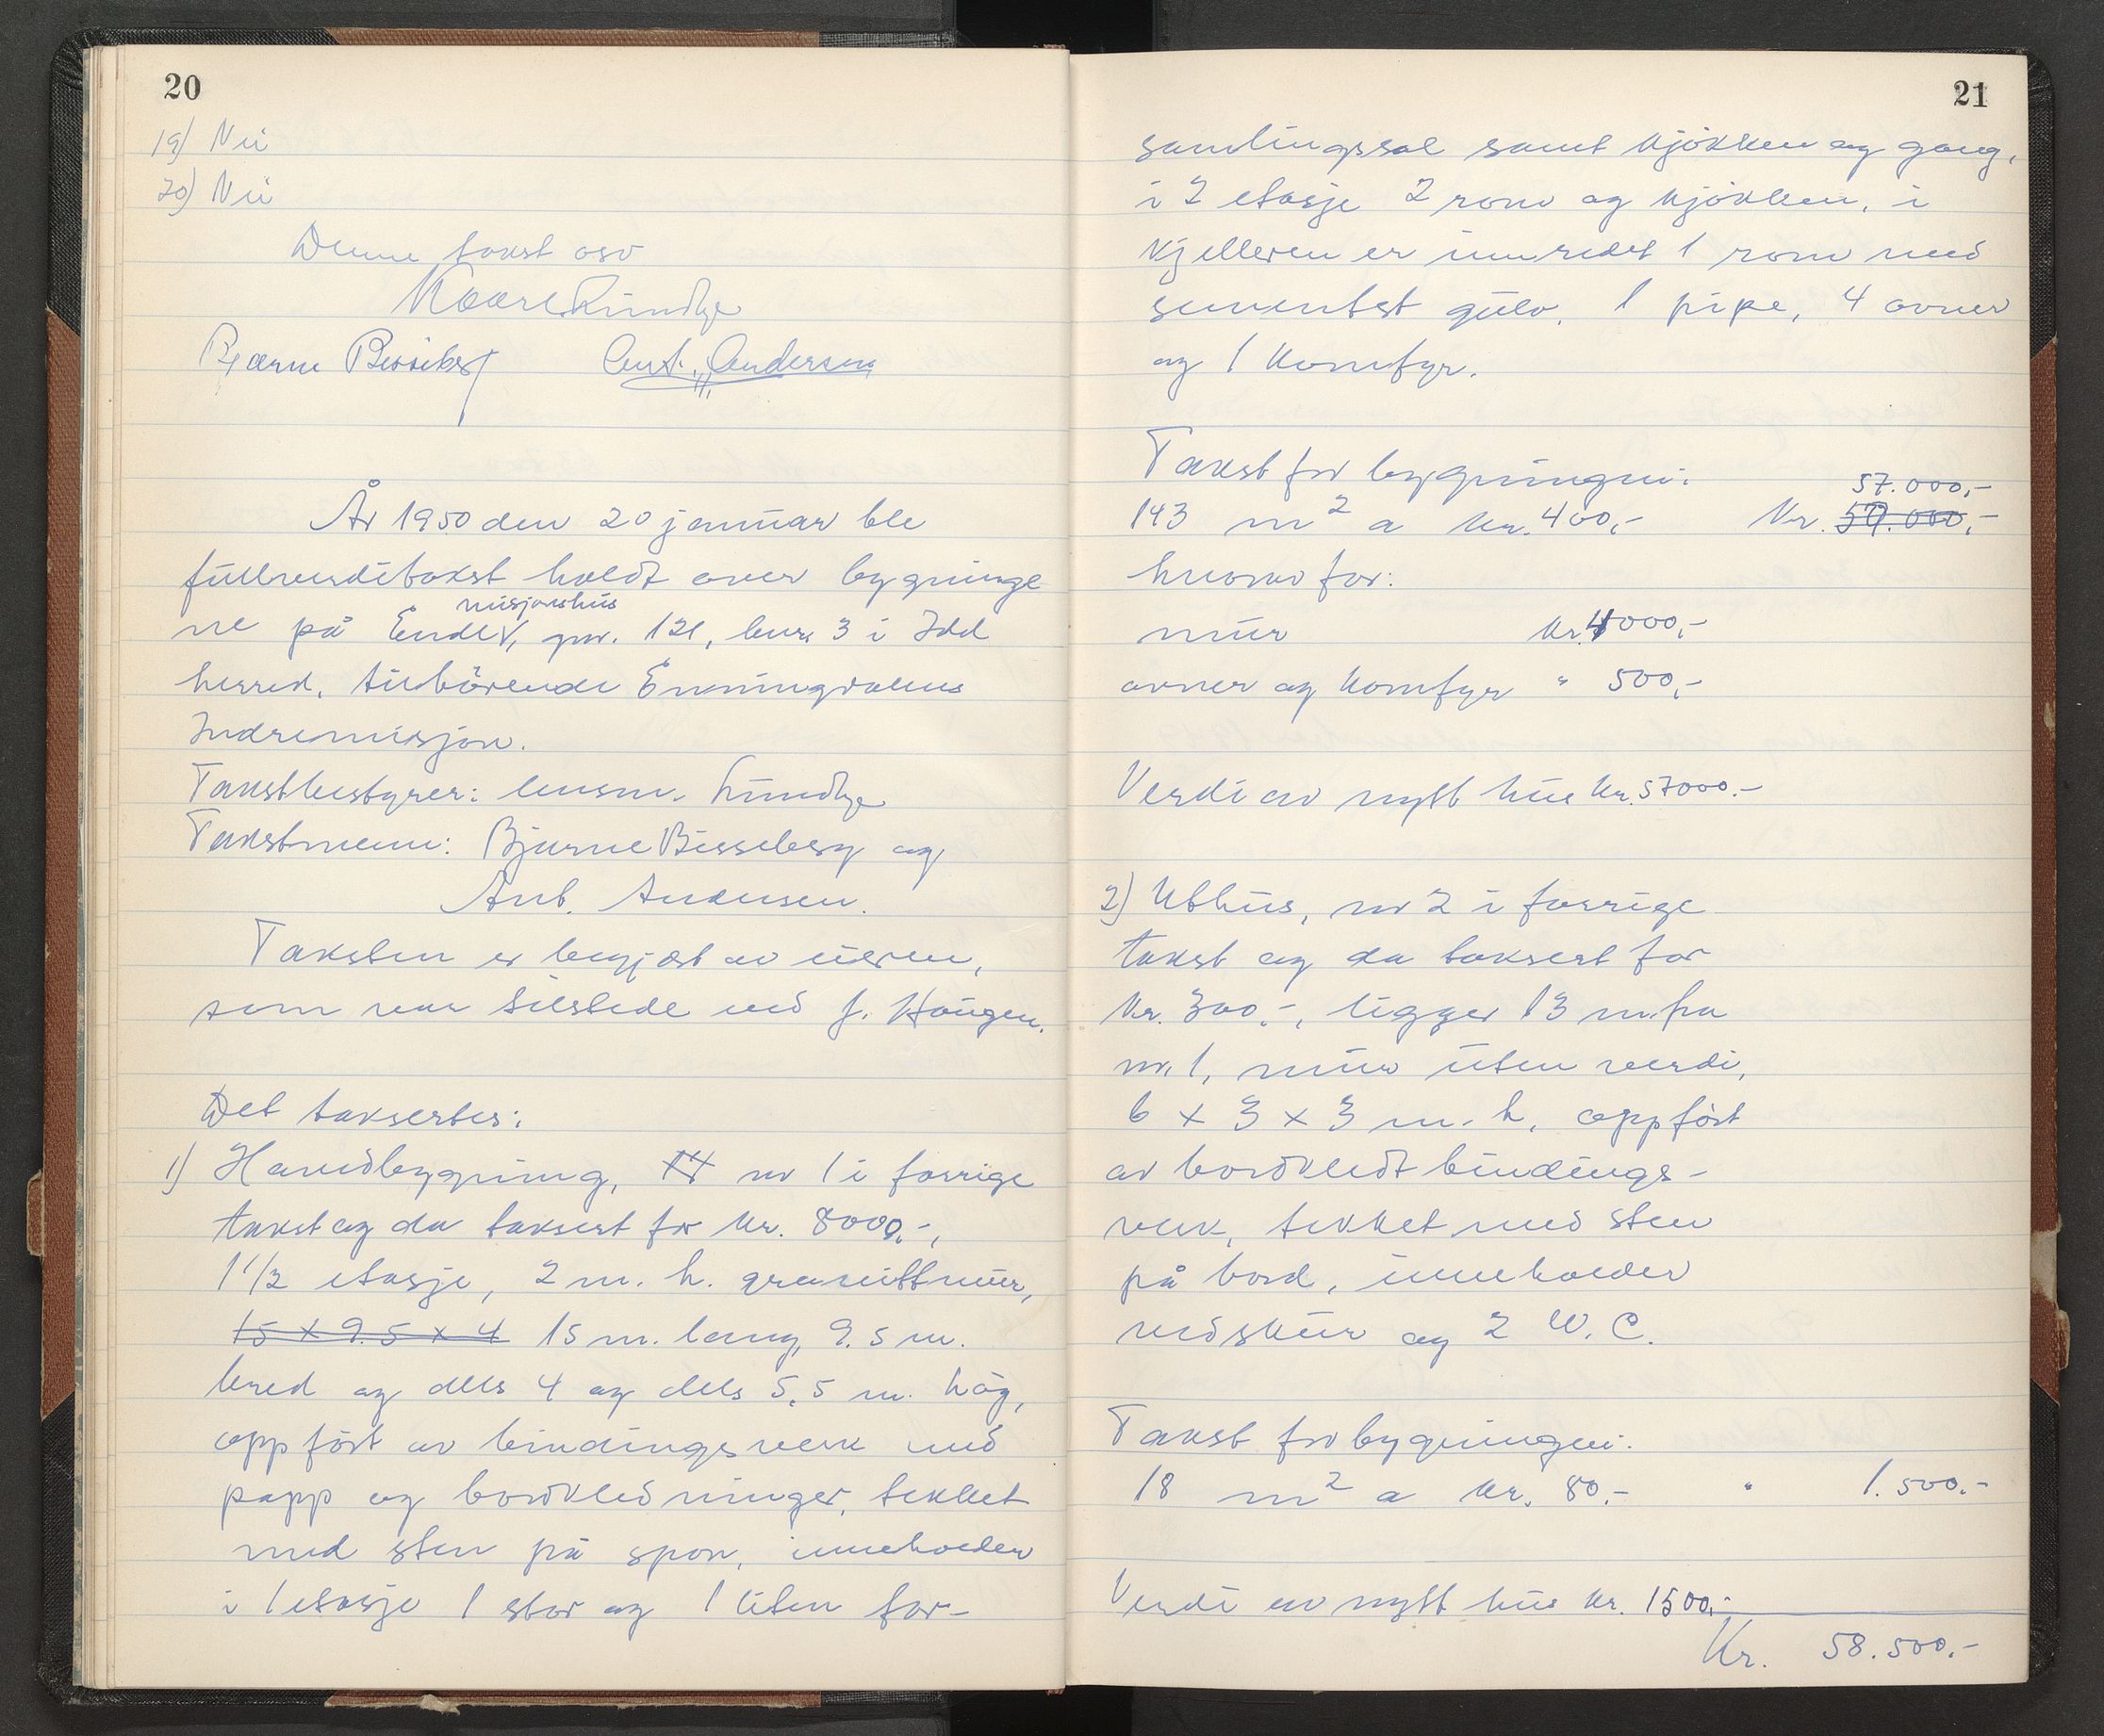 20
19) Nei
20) Nei
Denne takst osv
Kaare Lundby
Bjarne Bisseberg Ant. Andersen
År 1950 den 20 januar ble
fullverditakst holdt over bygninge
misjonshus
ne på Ende, gnr. 121, bnr. 3 i Idd
herred, tilhörende Enningdalens
Indremisjon.
Takstbestyrer: lensm. Lundby
Takstmenn: Bjarne Bisseberg og
Ant. Andersen.
Taksten er begjært av eieren,
som var tilstede ved J. Haugen.
Det taksertes:
1) Hovedbygning, 14 nr 1 i forrige
takst og da taksert for kr. 8000.-,
1 1/2 etasje, 2 m. h. granittmur,
15 x 9.5 x 4 15 m. lang, 9.5 m.
bred og dels 4 og dels 5,5 m. høg,
oppfört av bindingsverk med
papp og bordkledninger, tekket
med sten på spon, inneholder
i 1 etasje 1 stor og 1 liten for-
21
samlingssal samt kjökken og gang,
i 2 etasje 2 rom og kjökken, i
kjelleren er innredet 1 rom med
sementert gulv. 1 pipe, 4 ovner
og 1 komfyr.
Takst for bygningen:
57.000,-
143 m2 a kr. 400,- Kr. 59.000,-
hvorav for:
mur kr. 4000,-
ovner og komfyr " 500,-
Verdi av nytt hus kr. 57000.-
2) Uthus, nr 2 i forrige
takst og da taksert for
kr. 300.-, ligger 13 m. fra
nr. 1, mur uten verdi,
6 x 3 x 3 m. h. oppfört
av bordkledt bindings-
verk, tekket med sten
på bord, inneholder
vedskur og 2 W.C.
Takst for bygningen:
18 m2 a kr. 80.- " 1.500.-
Verdi av nytt hus kr. 1500.-
Kr. 58.500.-